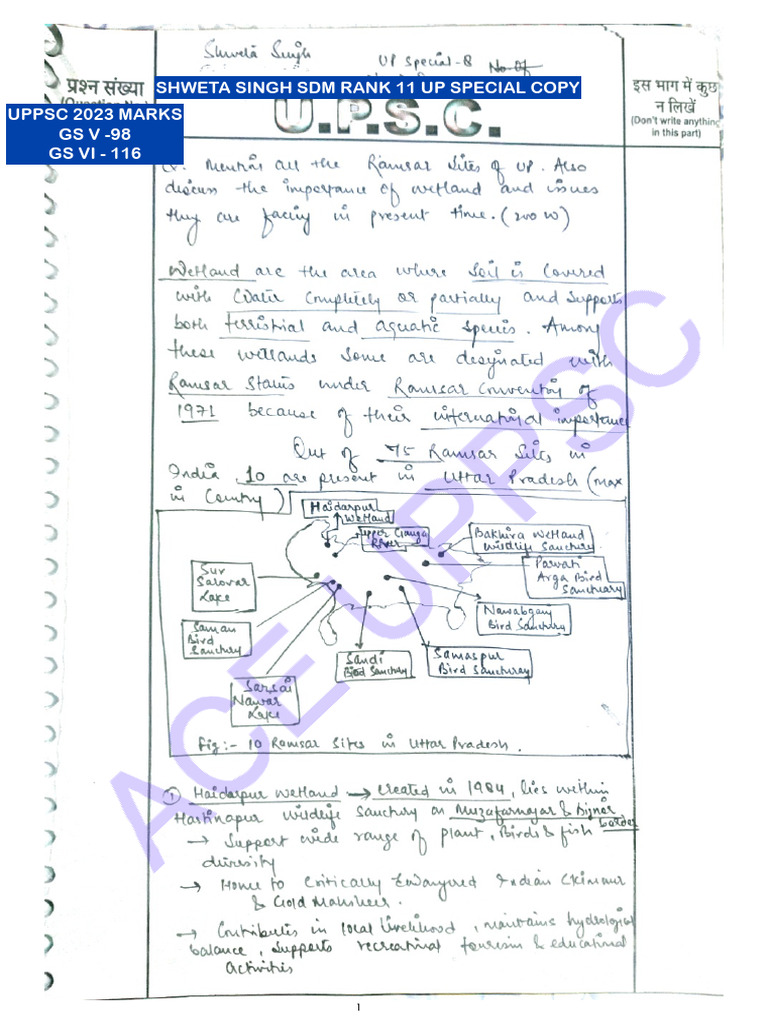 Shweta Singh
UP Special-8 No-07
प्रश्न संख्या
(Question No.)
SHWETA SINGH SDM RANK 11 UP SPECIAL COPY
इस भाग में कुछ
न लिखें
(Don't write anything
in this part)
UPPSC 2023 MARKS
GS V -98
GS VI - 116
U.P.S.C.
Q. Mention all the Ramsar Sites of UP. Also
discuss the importance of wetland and issues
they are facing in present time. (200 W)
Wetland are the area where Soil is Covered
with Water Completely or partially and Supports
both terristrial and aquatic Species. Among
these wetlands Some are designated with
Ramsar Status under Ramsar Convention of
1971 because of their international importance
Out of 75 Ramsar Sites in
India 10 are present in Uttar Pradesh (max
in Country)
Haidarpur
Wetland
Upper Ganga
River
Bakhira Wetland
Wildlife Sanctury.
Parvati
Arga Bird
Sanctuary
Sur
Sarovar
Lake
Nawabganj
Bird Sanctury
Saman
Bird
Sanctury
Sandi
Bird Sanctury
Samaspur
Bird Sancturay
Sarsai
Nawar
Lake
Fig:- 10 Ramsar Sites in Uttar Pradesh.
① Haidarpur Wetland → Created in 1984, lies within
Hastinapur wildlife Sanctury on Muzafarnagar & Bijnor
border
→ Support wide range of plant, Birds & fish
diversity
→ Home to Critically Endangered Indian Skimmer
& Gold Mahsheer.
→ Contributes in local livelihood, maintains hydrological
balance, Supports recreational tourism & educational
activities
ACE UPPSC
1